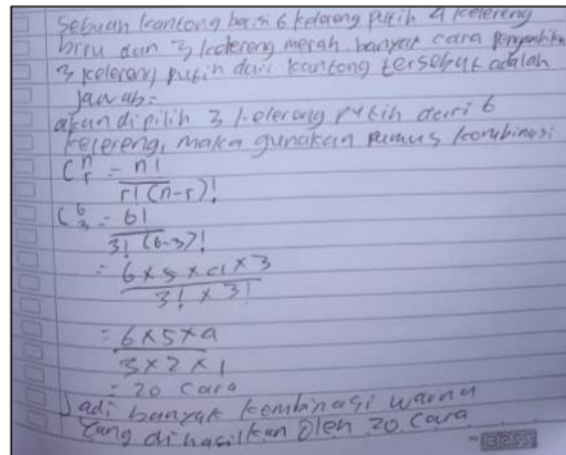 Sebuah kantong berisi 6 kelereng putih 4 kelereng
biru dan 3 kelereng merah. banyak cara pengambilan
3 kelereng putih dari kantong tersebut adalah
Jawab:
akan dipilih 3 kelereng putih dari 6
kelereng, maka gunakan rumus kombinasi
C n r = n! / r! (n-r)!
C 6 3 = 6! / 3! (6-3)!
= 6 x 5 x 4 x 3 / 3! x 3!
= 6 x 5 x 4 / 3 x 2 x 1
= 20 cara
Jadi banyak kombinasi warna
yang dihasilkan oleh 20 cara